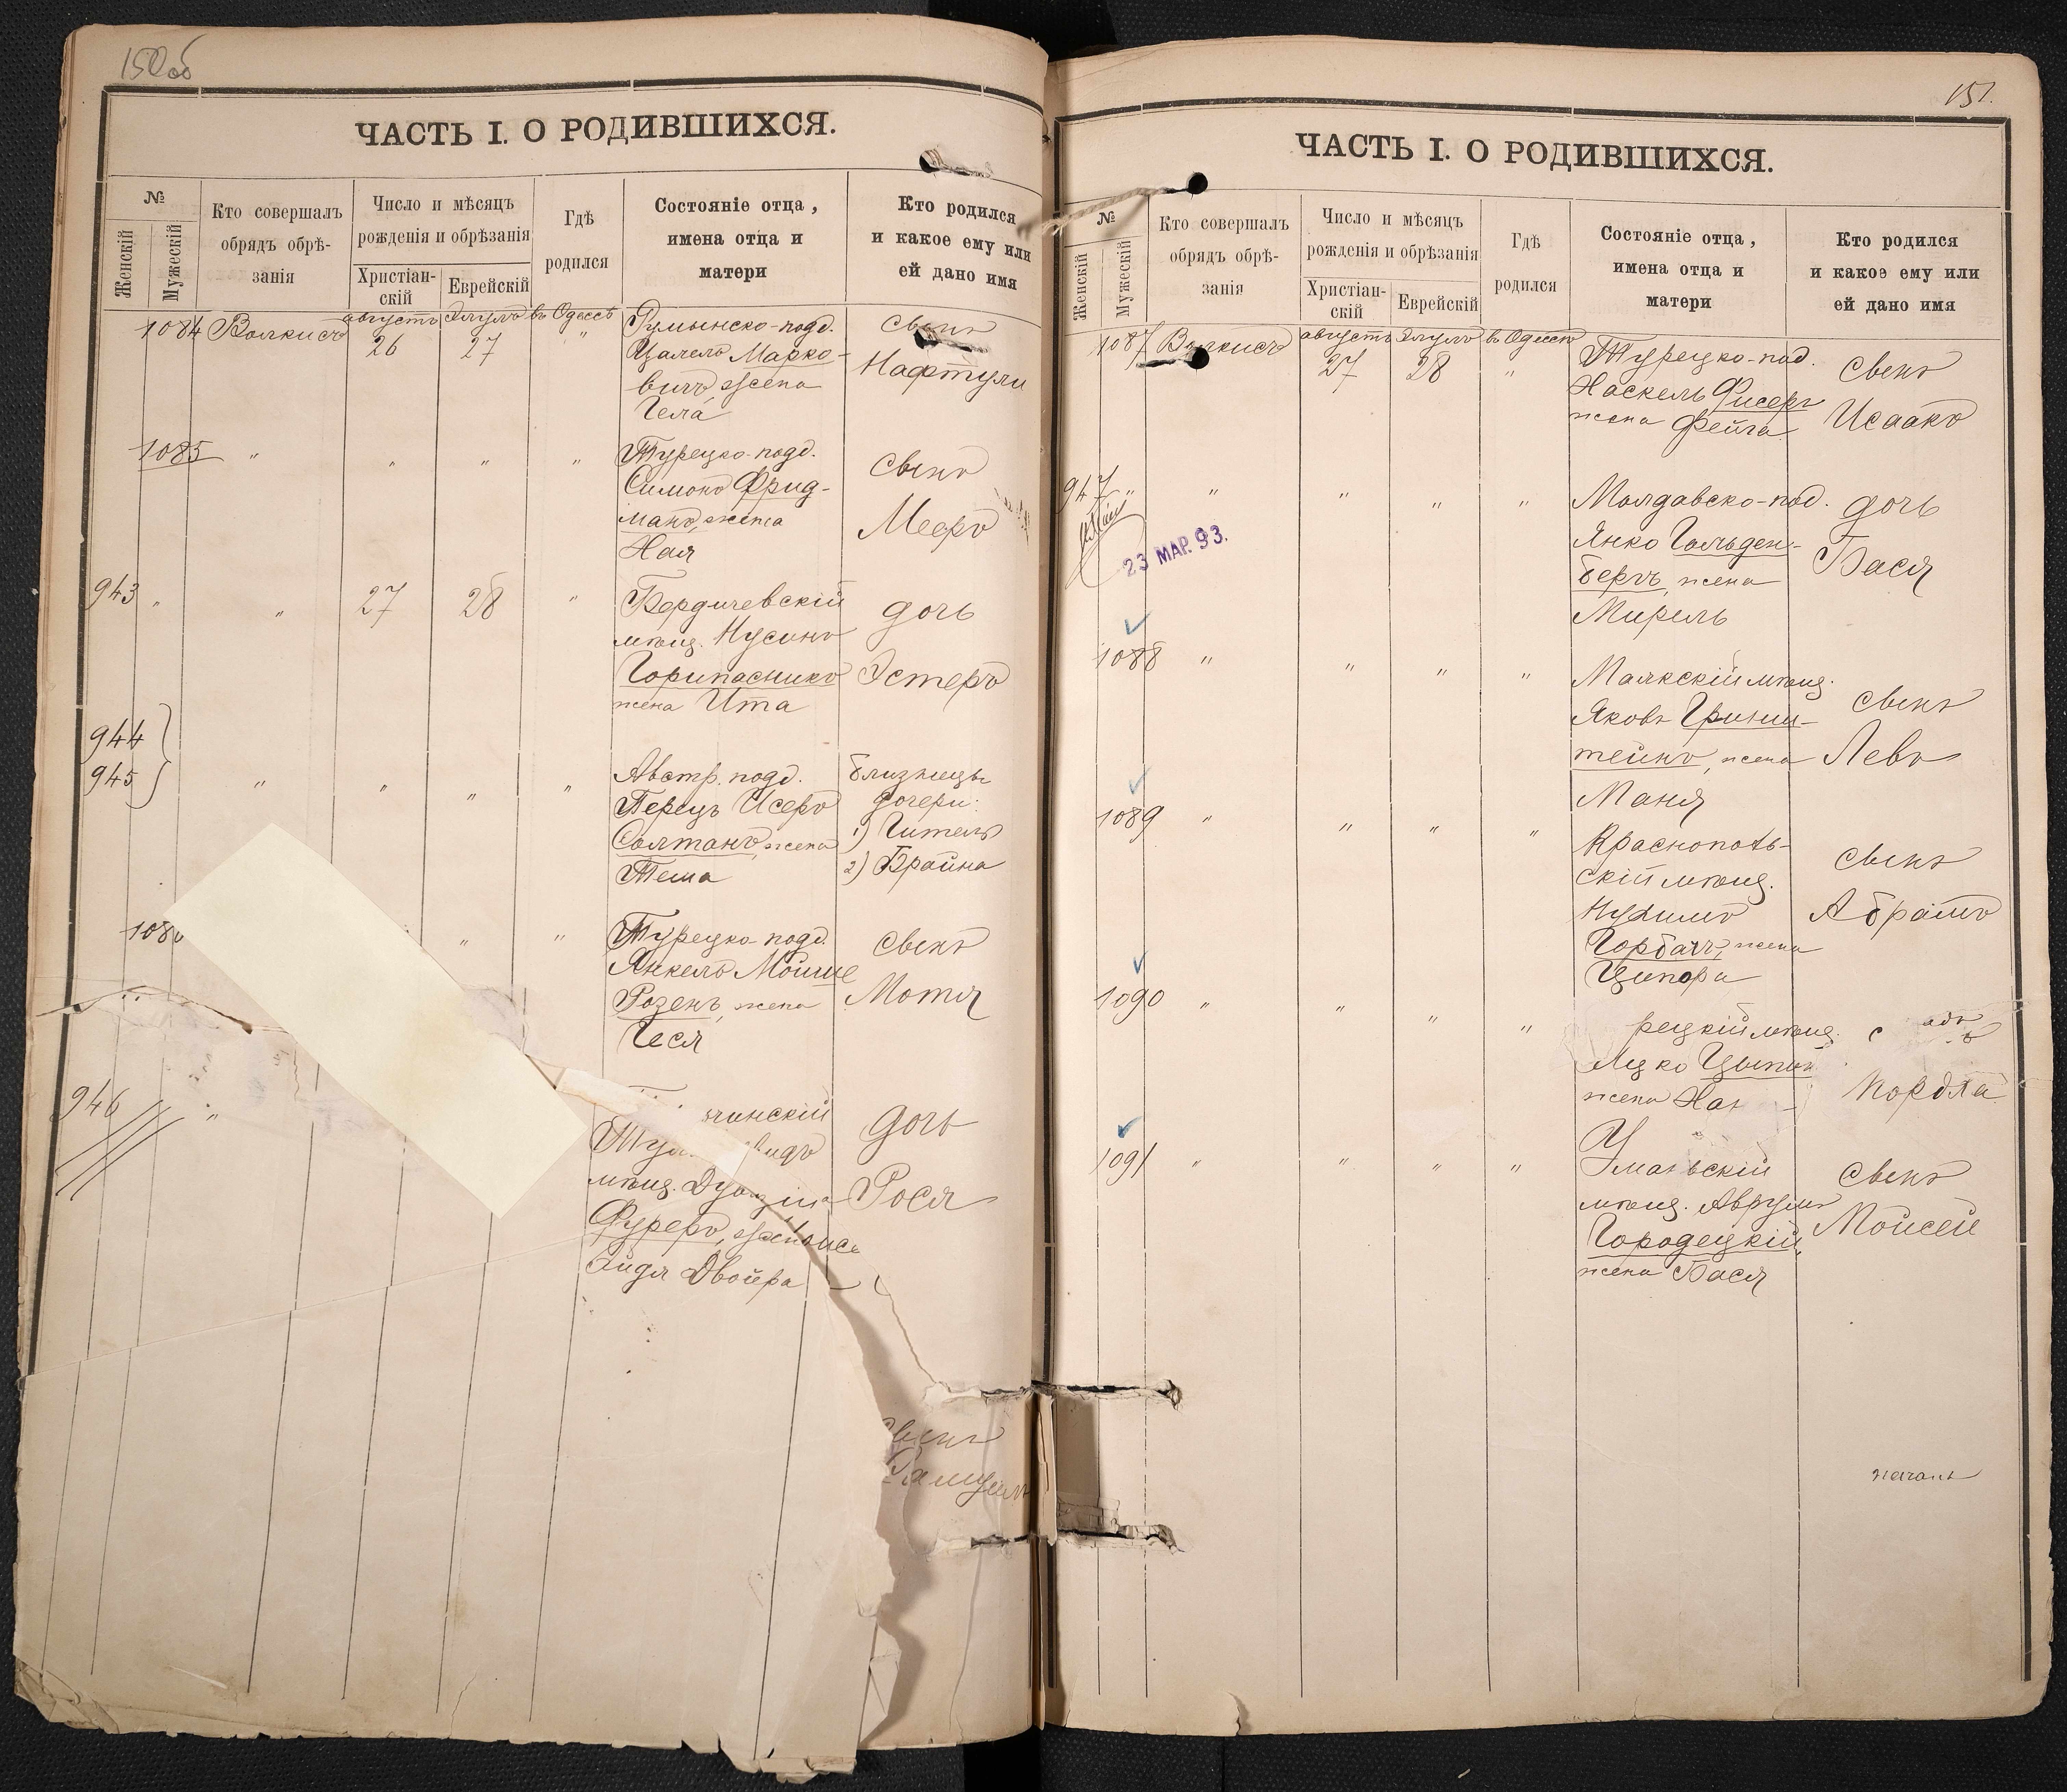 150об
ЧАСТЬ I. О РОДИВШИХСЯ.
№
Женскій
Мужескій
Кто совершалъ
обрядъ обрѣ-
занія
Число и мѣсяцъ
рожденія и обрѣзанія
Христіан-
скій
Еврейскій
Гдѣ
родился
Состояніе отца,
имена отца и
матери
Кто родился
и какое ему или
ей дано имя
1084 Волкисъ августъ 26 Элулъ 27 въ Одессѣ "
Румынско-подд.
Цалелъ Марко-
вичъ, жена
Гела
сынъ
Нафтули
1085 " " " "
Турецко-подд.
Симонъ Фрид-
манъ, жена
Хая
сынъ
Мееръ
943 " " 27 28 "
Бердичевскій
мѣщ. Нусинъ
Горипасникъ
жена Ита
дочь
Эстеръ
944
945 " " " "
Австр. подд.
Перецъ Исеръ
Солтанъ, жена
Тема
близнецы
дочери:
1) Гитель
2) Брайна
108
" "
Турецко-подд.
Янкель Мойше
Розенъ, жена
Геся
сынъ
Мотя
946 "
мѣщ.
Фуреръ,
Эйдля Двойра
дочь
Рося
151.
ЧАСТЬ I. О РОДИВШИХСЯ.
№
Женскій
Мужескій
Кто совершалъ
обрядъ обрѣ-
занія
Число и мѣсяцъ
рожденія и обрѣзанія
Христіан-
скій
Еврейскій
Гдѣ
родился
Состояніе отца,
имена отца и
матери
Кто родился
и какое ему или
ей дано имя
1087 Волкисъ августъ 27 Элулъ 28 въ Одессѣ "
Турецко-под.
Хаскель Фисеръ
жена Фейга
сынъ
Исаакъ
947 " " " " "
23 МАР. 93.
Молдавско-под.
Янко Гольден-
бергъ, жена
Мирель
дочь
Бася
1088 " " " "
Маякскій мѣщ.
Яковъ Гринш-
тейнъ, жена
Маня
сынъ
Левъ
1089 " " " "
Краснополь-
скій мѣщ.
Нухимъ
Горбачъ, жена
Ципора
сынъ
Абрамъ
1090 " " " "
рецкій мѣщ.
Ицко
жена
1091 " " " "
Уманьскій
мѣщ. Аврумъ
Городецкій,
жена Бася
сынъ
Мойсей